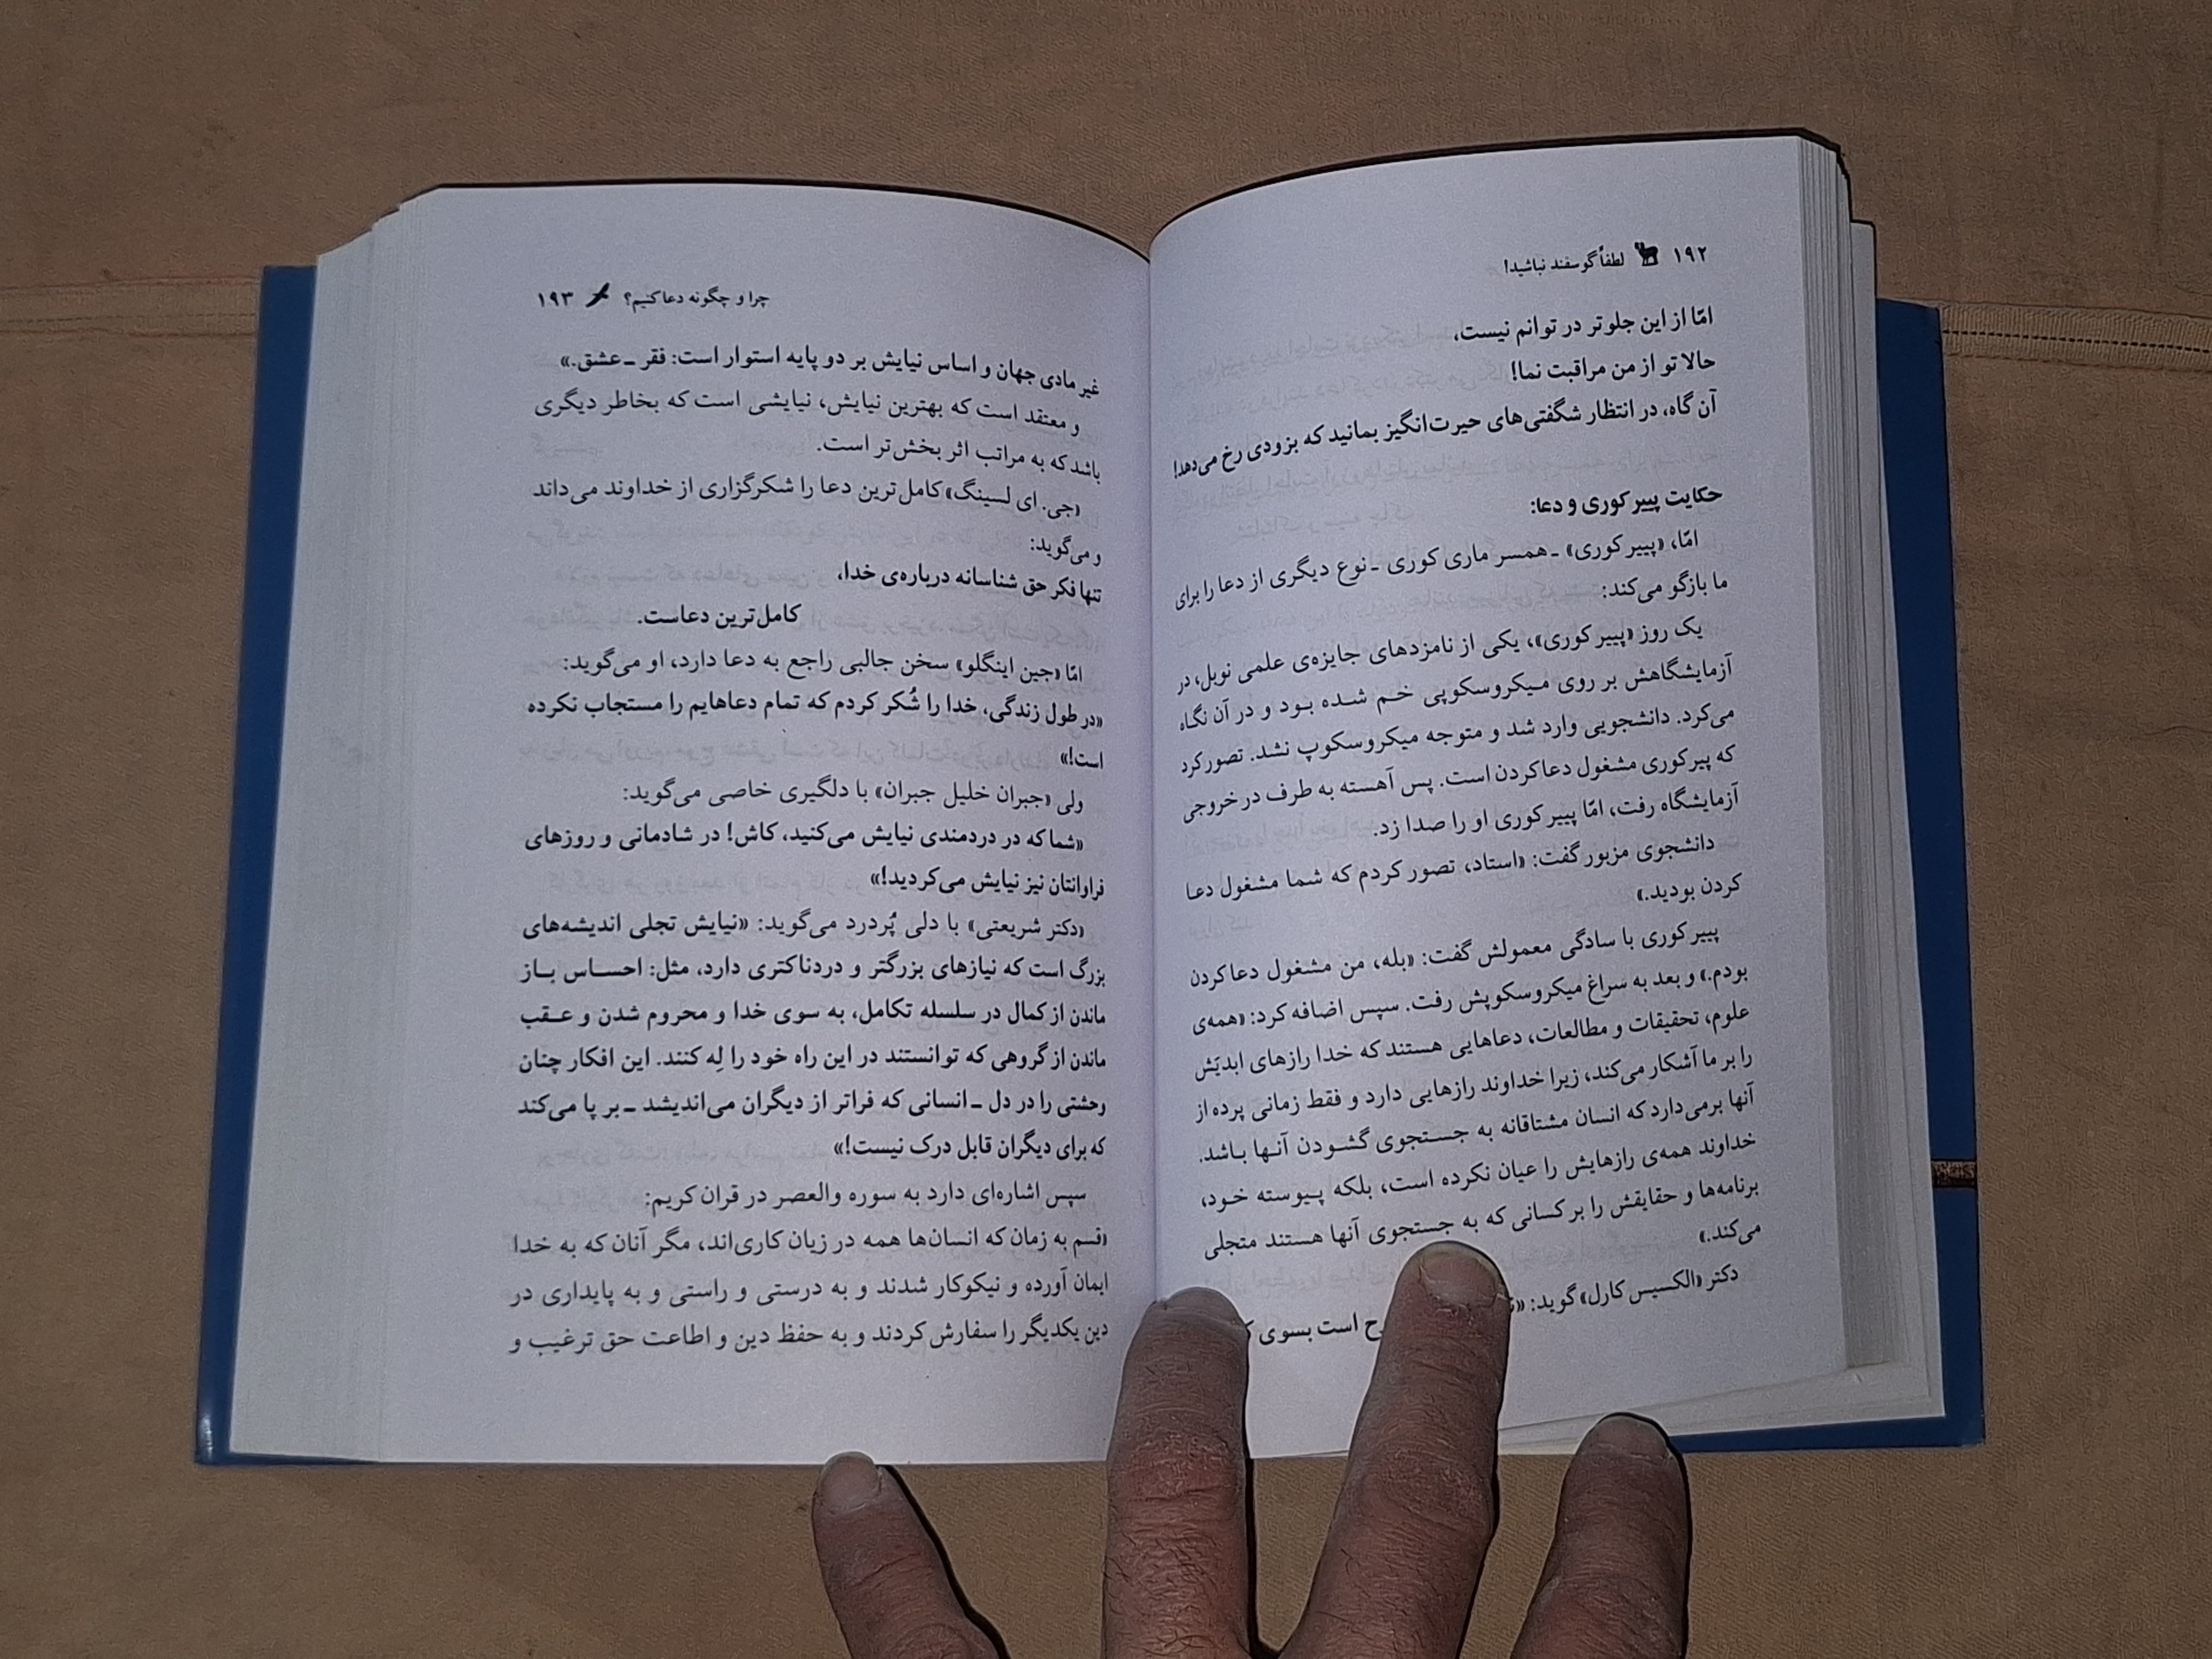 ۱۹۲ لطفاً گوسفند نباشید!
امّا از این جلوتر در توانم نیست،
حالا تو از من مراقبت نما!
آن گاه، در انتظار شگفتی‌های حیرت‌انگیز بمانید که بزودی رخ می‌دهد!
حکایت پییر کوری و دعا:
امّا، «پییر کوری» ـ همسر ماری کوری ـ نوع دیگری از دعا را برای
ما بازگو می‌کند:
یک روز «پییر کوری»، یکی از نامزدهای جایزه‌ی علمی نوبل، در
آزمایشگاهش بر روی میکروسکوپی خم شده بود و در آن نگاه
می‌کرد. دانشجویی وارد شد و متوجه میکروسکوپ نشد. تصور کرد
که پیرکوری مشغول دعا کردن است. پس آهسته به طرف در خروجی
آزمایشگاه رفت، امّا پییر کوری او را صدا زد.
دانشجوی مزبور گفت: «استاد، تصور کردم که شما مشغول دعا
کردن بودید.»
پییر کوری با سادگی معمولش گفت: «بله، من مشغول دعا کردن
بودم.» و بعد به سراغ میکروسکوپش رفت. سپس اضافه کرد: «همه‌ی
علوم، تحقیقات و مطالعات، دعاهایی هستند که خدا رازهای ابدیَش
را بر ما آشکار می‌کند، زیرا خداوند رازهایی دارد و فقط زمانی پرده از
آنها برمی‌دارد که انسان مشتاقانه به جستجوی گشودن آنها باشد.
خداوند همه‌ی رازهایش را عیان نکرده است، بلکه پیوسته خود،
برنامه‌ها و حقایقش را بر کسانی که به جستجوی آنها هستند متجلی
می‌کند.»
دکتر «الکسیس کارل» گوید:
است بسوی
چرا و چگونه دعا کنیم؟ ۱۹۳
غیر مادی جهان و اساس نیایش بر دو پایه استوار است: فقر ـ عشق.»
و معتقد است که بهترین نیایش، نیایشی است که بخاطر دیگری
باشد که به مراتب اثر بخش‌تر است.
«جی. ای لسینگ» کامل‌ترین دعا را شکرگزاری از خداوند می‌داند
و می‌گوید:
تنها فکر حق شناسانه درباره‌ی خدا،
کامل‌ترین دعاست.
امّا «جین اینگلو» سخن جالبی راجع به دعا دارد، او می‌گوید:
«در طول زندگی، خدا را شُکر کردم که تمام دعاهایم را مستجاب نکرده
است!»
ولی «جبران خلیل جبران» با دلگیری خاصی می‌گوید:
«شما که در دردمندی نیایش می‌کنید، کاش! در شادمانی و روزهای
فراوانتان نیز نیایش می‌کردید!»
«دکتر شریعتی» با دلی پُردرد می‌گوید: «نیایش تجلی اندیشه‌های
بزرگ است که نیازهای بزرگتر و دردناکتری دارد، مثل: احساس باز
ماندن از کمال در سلسله تکامل، به سوی خدا و محروم شدن و عقب
ماندن از گروهی که توانستند در این راه خود را لِه کنند. این افکار چنان
وحشتی را در دل ـ انسانی که فراتر از دیگران می‌اندیشد ـ بر پا می‌کند
که برای دیگران قابل درک نیست!»
سپس اشاره‌ای دارد به سوره والعصر در قران کریم:
«قسم به زمان که انسان‌ها همه در زیان کاری‌اند، مگر آنان که به خدا
ایمان آورده و نیکوکار شدند و به درستی و راستی و به پایداری در
دین یکدیگر را سفارش کردند و به حفظ دین و اطاعت حق ترغیب و